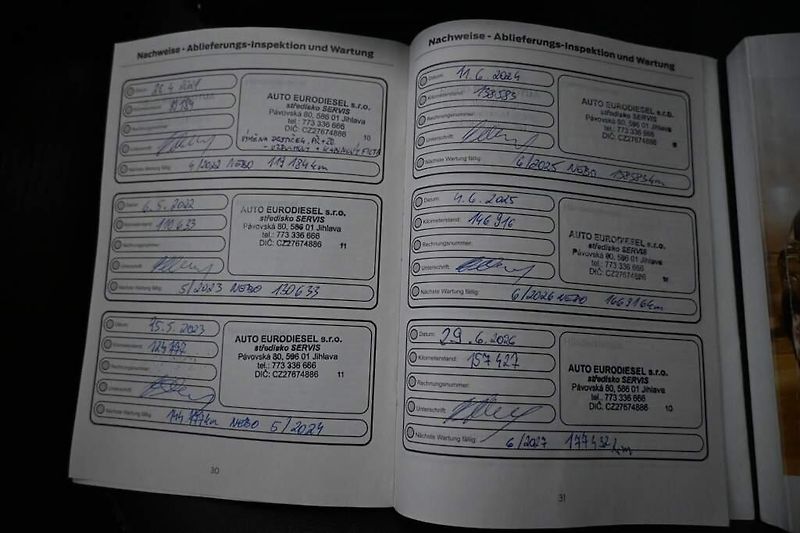 Nachweise - Ablieferungs-Inspektion und Wartung
Datum: 26.4.2021
91 184
AUTO EURODIESEL s.r.o.
středisko SERVIS
Pávovská 80, 586 01 Jihlava
tel.: 773 336 666
DIČ: CZ27674886
10
Nächste Wartung fällig: 4/2022 NEBO 111 184 km
Datum: 6.5.2022
Kilometerstand: 110633
Rechnungsnummer:
Unterschrift:
AUTO EURODIESEL s.r.o.
středisko SERVIS
Pávovská 80, 586 01 Jihlava
tel.: 773 336 666
DIČ: CZ27674886
11
Nächste Wartung fällig: 5/2023 NEBO 130633
Datum: 15.5.2023
Kilometerstand: 124777
Rechnungsnummer:
Unterschrift:
AUTO EURODIESEL s.r.o.
středisko SERVIS
Pávovská 80, 586 01 Jihlava
tel.: 773 336 666
DIČ: CZ27674886
11
Nächste Wartung fällig: 144 777 km NEBO 5/2024
30
Nachweise - Ablieferungs-Inspektion und Wartung
Datum: 11.6.2024
Kilometerstand: 138583
Rechnungsnummer:
Unterschrift:
AUTO EURODIESEL s.r.o.
středisko SERVIS
Pávovská 80, 586 01 Jihlava
tel.: 773 336 666
DIČ: CZ27674886
Nächste Wartung fällig: 6/2025 NEBO 158583 km
Datum: 4.6.2025
Kilometerstand: 146916
Rechnungsnummer:
Unterschrift:
AUTO EURODIESEL s.r.o.
středisko SERVIS
Pávovská 80, 586 01 Jihlava
tel.: 773 336 666
DIČ: CZ27674886
Nächste Wartung fällig: 6/2026 NEBO 166916 km
Datum: 29.6.2026
Kilometerstand: 157427
Rechnungsnummer:
Unterschrift:
AUTO EURODIESEL s.r.o.
středisko SERVIS
Pávovská 80, 586 01 Jihlava
tel.: 773 336 666
DIČ: CZ27674886
10
Nächste Wartung fällig: 6/2027 177432 km
31